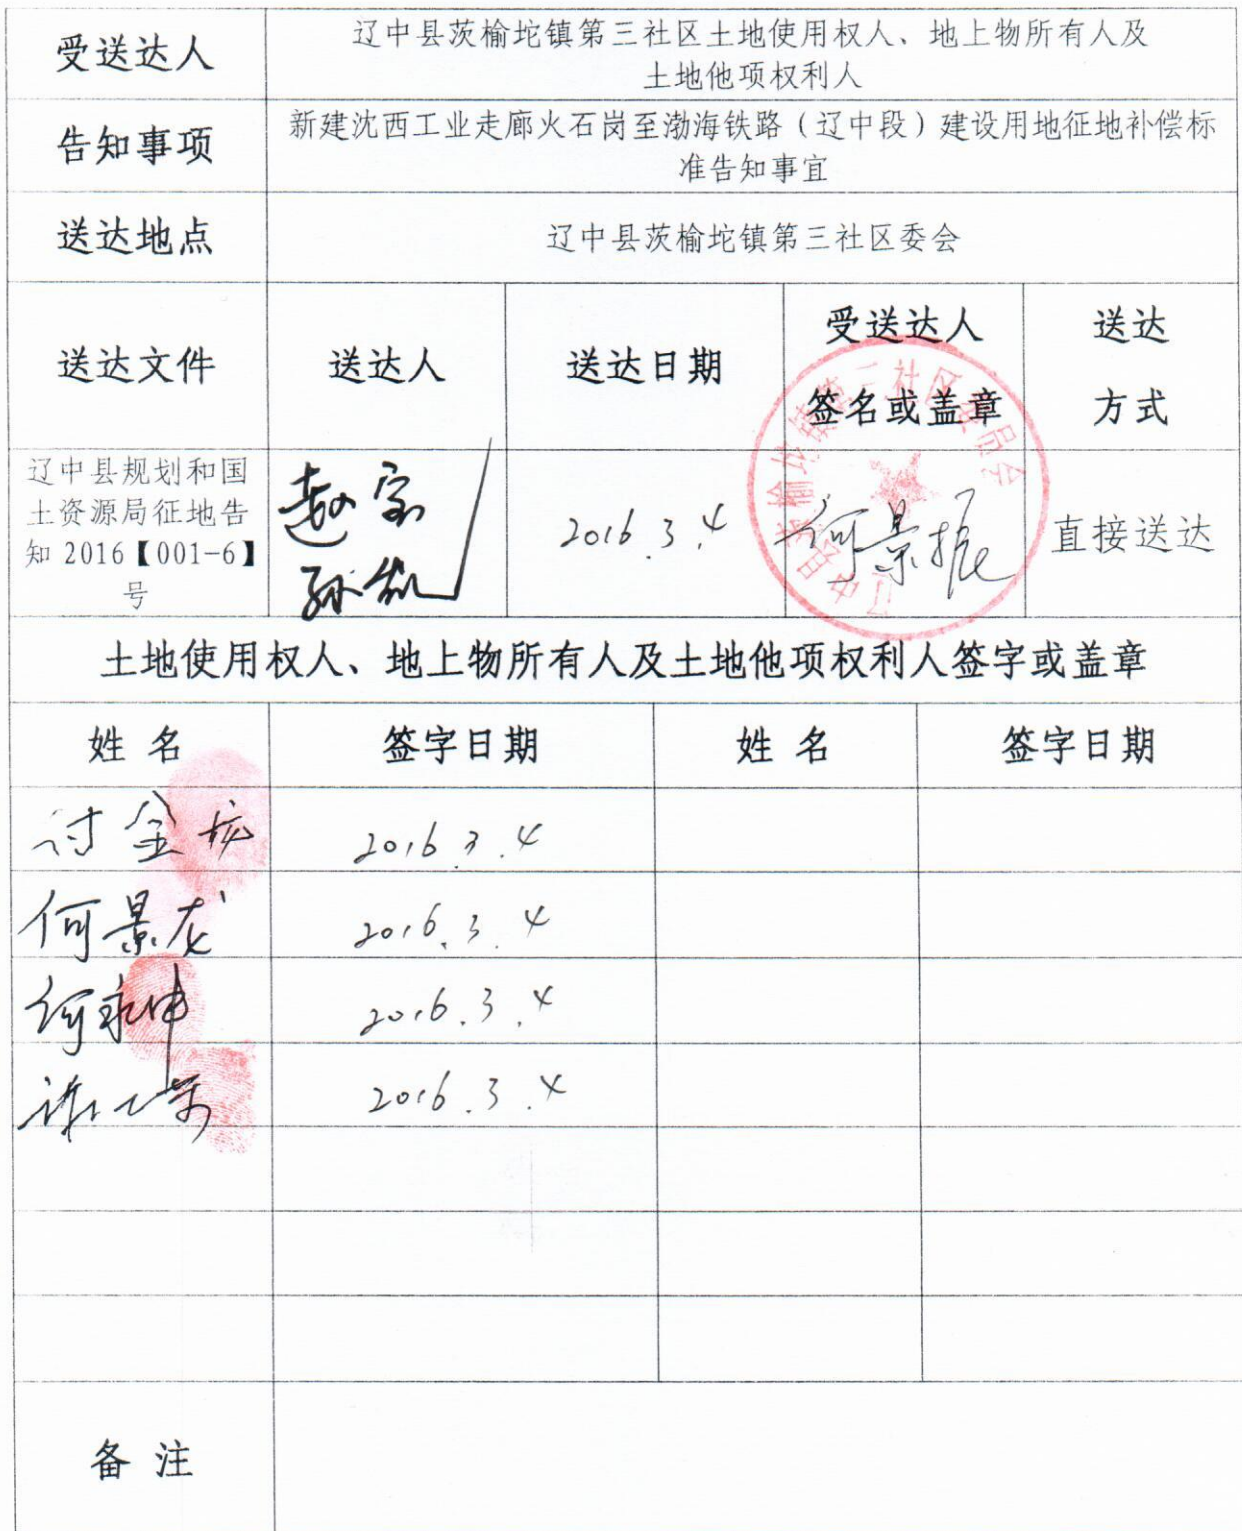 受送达人
辽中县茨榆坨镇第三社区土地使用权人、地上物所有人及
土地他项权利人
告知事项
新建沈西工业走廊火石岗至渤海铁路（辽中段）建设用地征地补偿标
准告知事宜
送达地点
辽中县茨榆坨镇第三社区委会
送达文件
送达人
送达日期
受送达人
签名或盖章
送达
方式
辽中县规划和国
土资源局征地告
知 2016【001-6】
号
2016.3.4
何景振
辽中县茨榆坨镇第三社区委员会
直接送达
土地使用权人、地上物所有人及土地他项权利人签字或盖章
姓 名
签字日期
姓 名
签字日期
2016.3.4
何景龙
2016.3.4
何永坤
2016.3.4
2016.3.4
备 注